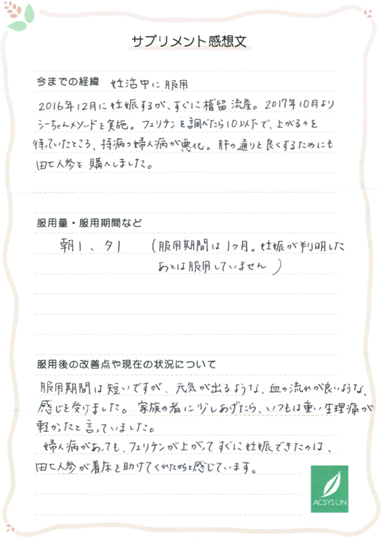 サプリメント感想文
今までの経緯 妊活中に服用
2016年12月に妊娠するが、すぐに稽留流産。2017年10月より
シーちゃんメソッドを実施。フェリチンを調べたら10以下で、上がるのを
待っていたところ、持病の婦人病が悪化。肝の通りを良くするためにも
田七人参を購入しました。
服用量・服用期間など
朝1、夕1 (服用期間は1ヶ月。妊娠が判明した
あとは服用していません)
服用後の改善点や現在の状況について
服用期間は短いですが、元気が出るような、血の流れが良いような、
感じを受けました。家族の者に少しあげたら、いつもは重い生理痛が
軽かったと言っていました。
婦人病があっても、フェリチンが上がってすぐに妊娠できたのは、
田七人参が着床を助けてくれたからと感じています。
ACSYS UN